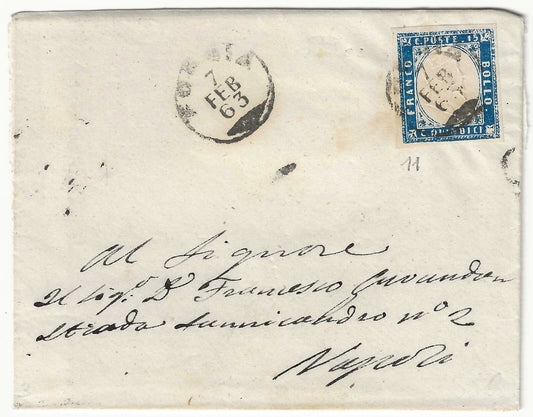 FOGGIA
7
FEB
63
C. POSTE 15
FRANCO
BOLLO
C. QUINDICI
7
FEB
63
11
Al Signore
Il Sigr. Dn Francesco
Strada Sannicandro no 2
Napoli